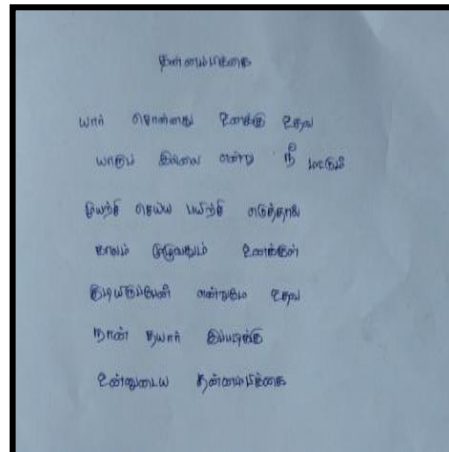 தன்னம்பிக்கை
யார் சொன்னது உனக்கு உதவ
யாரும் இல்லை என்று நீ மட்டும்
முயற்சி செய்ய பயிற்சி எடுத்தால்
காலம் முழுவதும் உனக்குள்
குடியிருப்பேன் என்றுமே உதவ
நான் தயார் இப்படிக்கு
உன்னுடைய தன்னம்பிக்கை